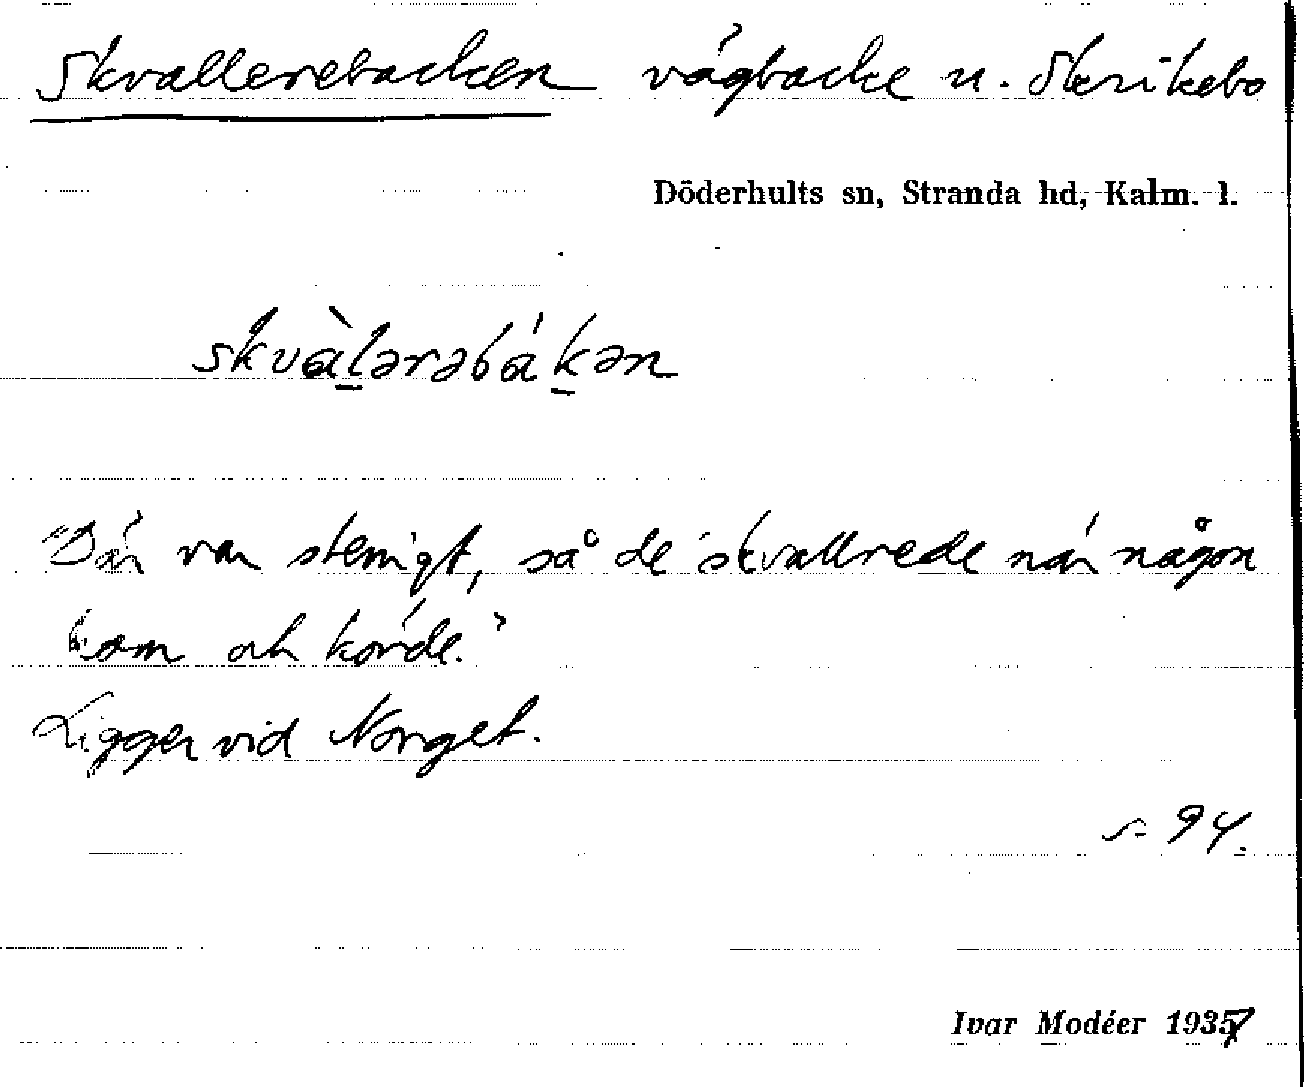 Skvallerebacken vägbacke u. Skrikebo
Döderhults sn, Stranda hd, Kalm. l.
skvàlərəbákən
"Där var stenigt, så de skvallrede når någon
kom och körde."
Ligger vid Norget.
s. 94.
Ivar Modéer 1937